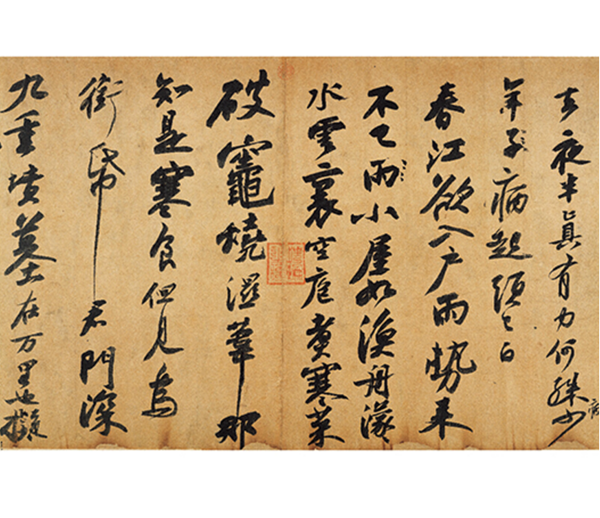 去夜半真有力何殊少
病
年子病起頭已白
春江欲入戶雨勢來
不已雨小屋如漁舟濛
水雲裏空庖煮寒菜
破竈燒濕葦那
知是寒食但見烏
銜帋君門深
九重墳墓在万里也擬